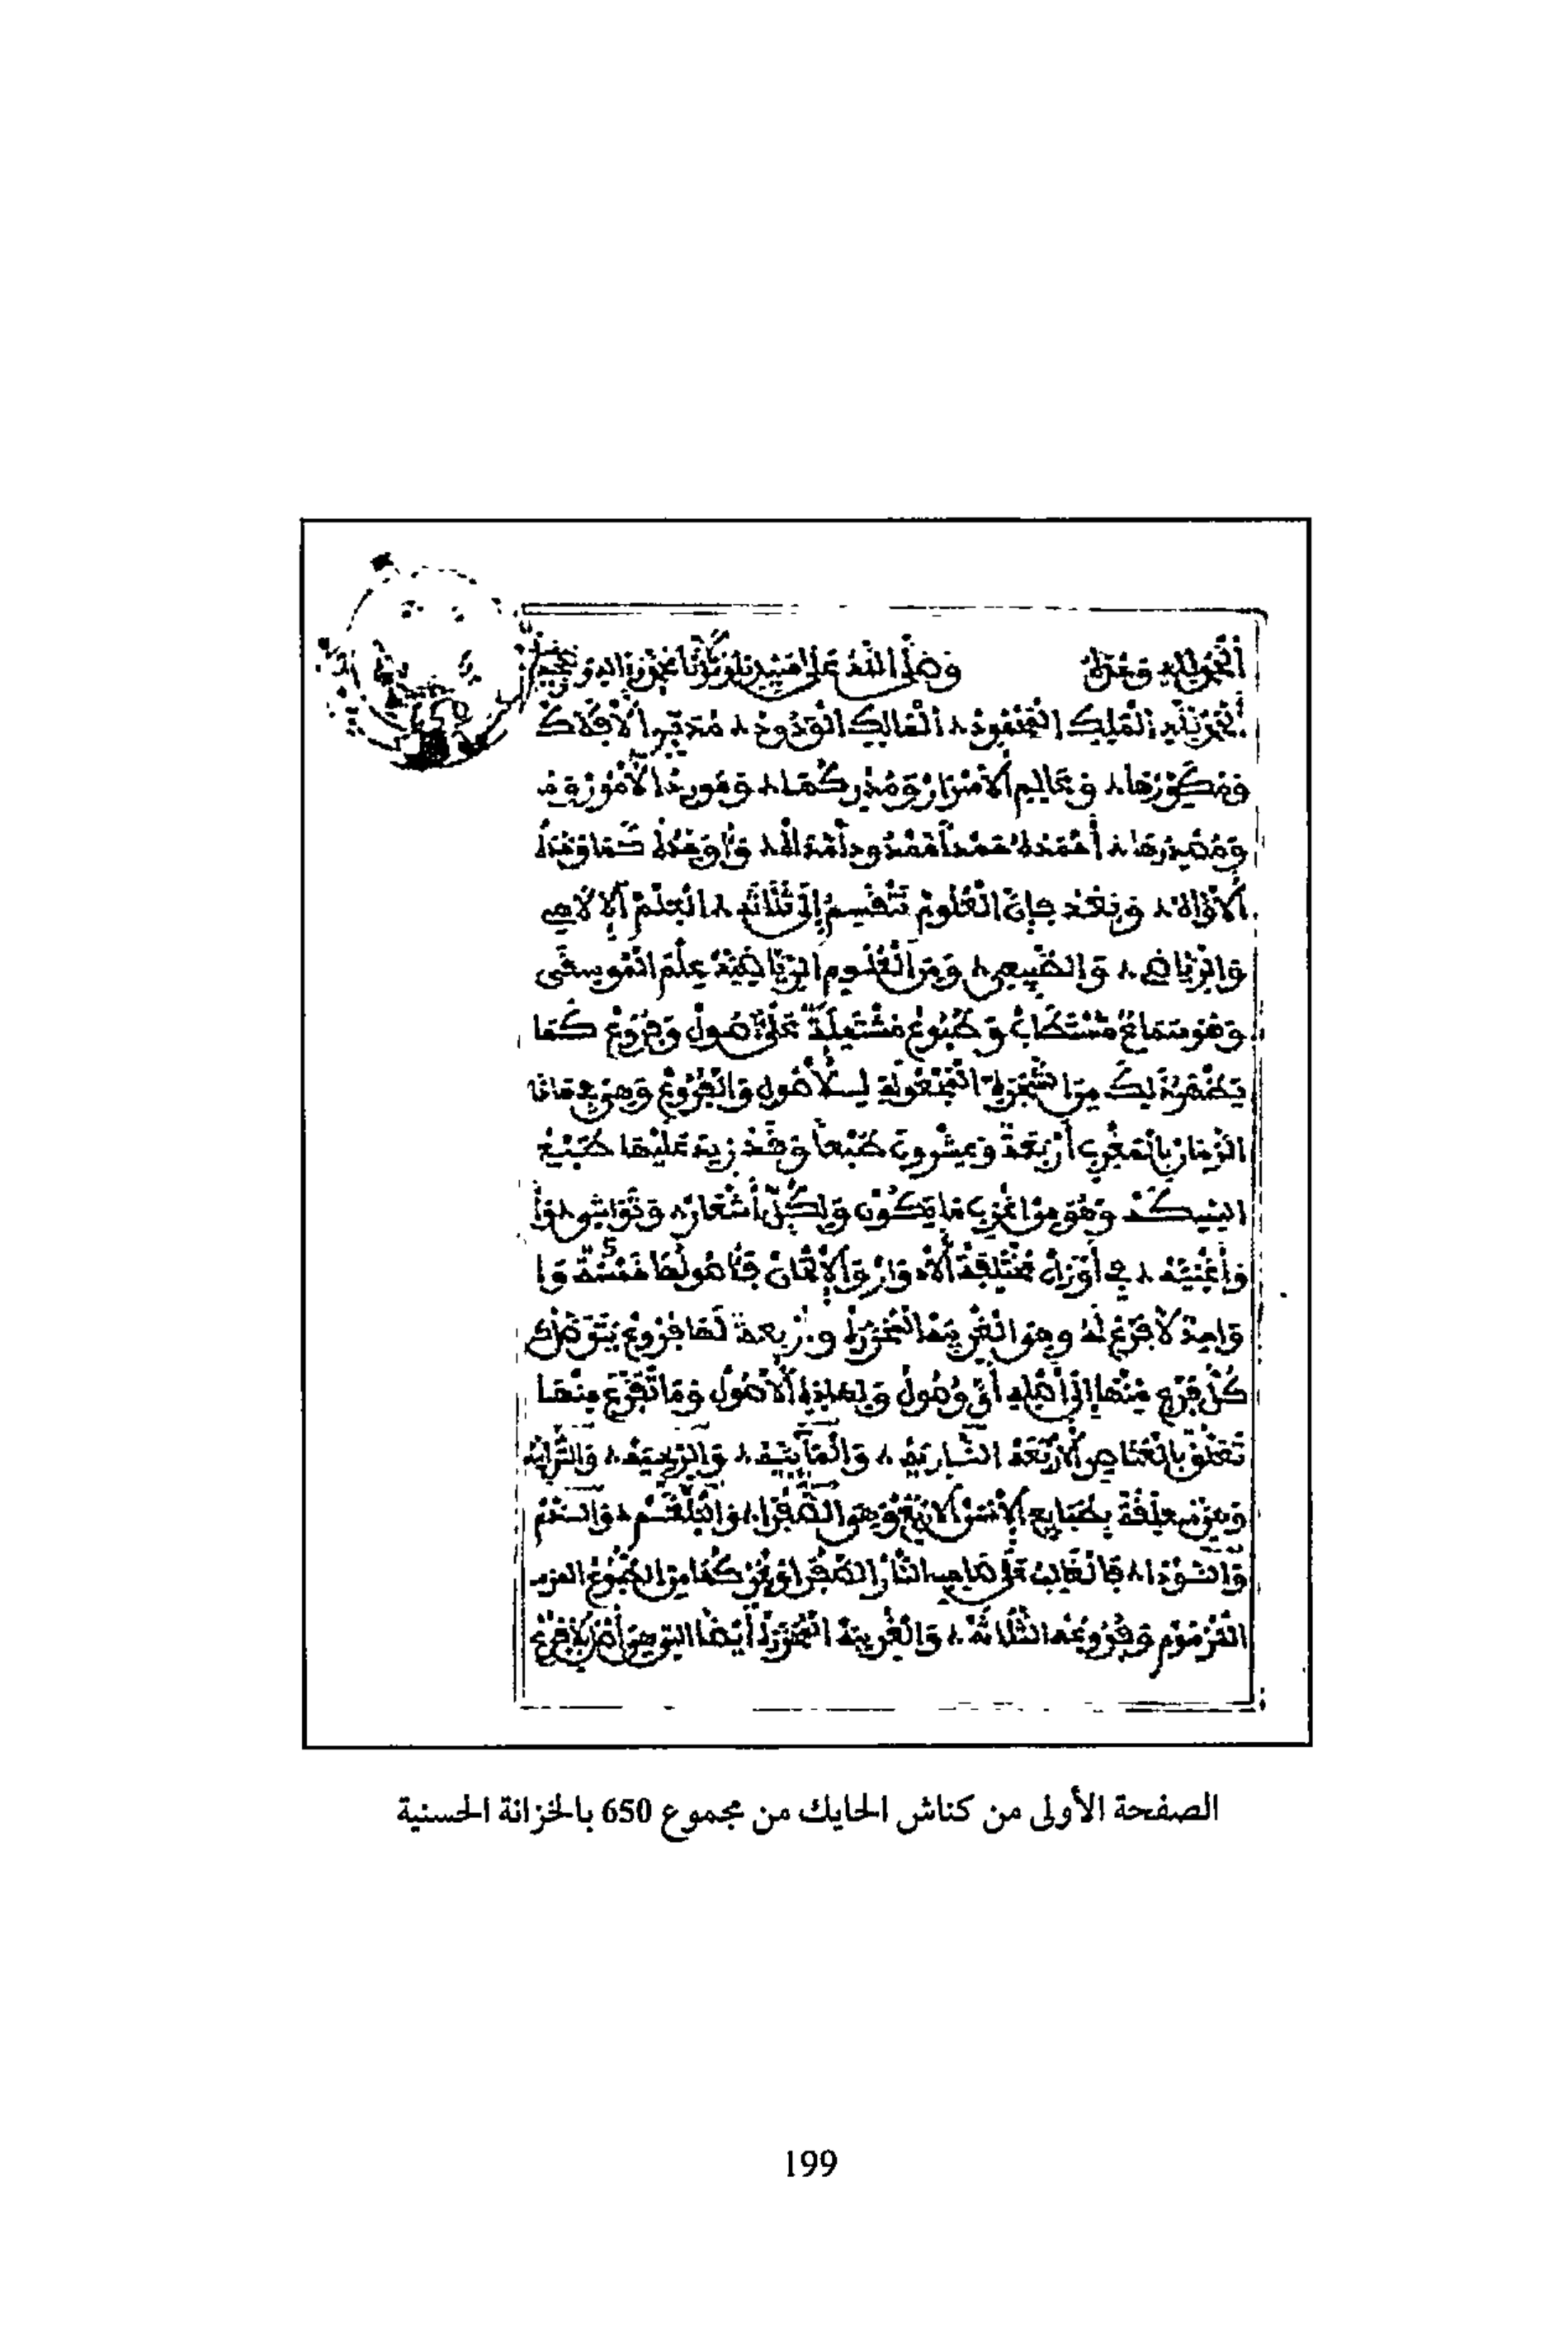 الحمد لله وحده وصلى الله على سيدنا ومولانا محمد وآله وصحبه
الحمد لله الملك المعبود، المالك الودود، مدبر الأفلاك
ومكورها، وعالم الأسرار ومدركها، ومورد الأمور
ومصدرها، أحمده حمدا
وبعد فإن العلوم تنقسم إلى ثلاثة، العلم الإلاهي
والرياضي، والطبيعي، ومن العلوم الرياضية علم الموسيقى
وهو سماع مستطاب وطبوع مشتملة على أصول وفروع كما
يظهر ذلك من الشجرة المجعولة للأصول والفروع وهو في هاذا
الزمان بالمغرب أربعة وعشرون طبعا وقد زيد عليها طبع
السيكه وهو من أغرب ما يكون ولكل أشعار، وتواشح
وأغنية، في أوزان مختلفة الأدوار والألحان فأصولها خمسة
واحد لا فرع له وهو الغريبة المحررة وأربعة لها فروع يتوصل
كل فرع منها إلى أصله أي وصول ولهذه الأصول وما تفرع منها
تعلق بالعناصر الأربعة النارية، والمآيية، والريحية، والترابية
وهي متعلقة بطبايع الإنس الأربعة وهو الصفرا، والبلغم، والدم
والسودا، فالغالب على صاحب النار الصفرا ويحركها من الطبوع المزموم
المزموم وفروعه الثلاثة، والغريبة المحررة أيضا التي هي أصل لا فرع
الصفحة الأولى من كناش الحايك من مجموع 650 بالخزانة الحسنية
199